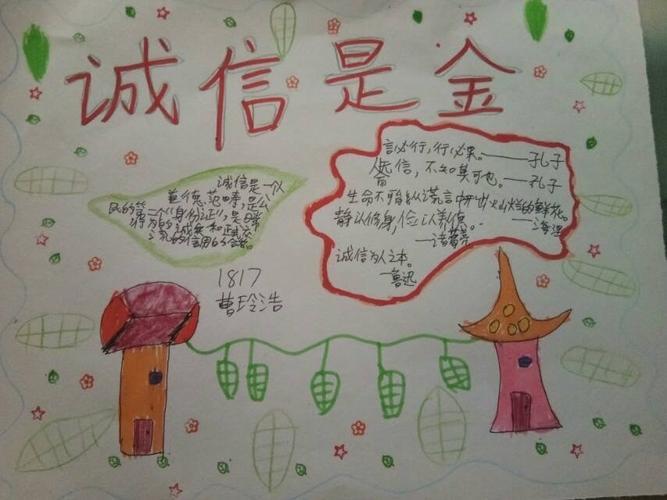 诚信是金
诚信是一个
道德范畴,是公
民的第二个“身份证”,是日常
行为的诚实和正式
交流的信用的合称。
1817
曹玲浩
言必行,行必果。——孔子
信,不知其可也。——孔子
生命不可能从谎言中开出灿烂的鲜花。
——海涅
静以修身,俭以养德。
——诸葛亮
诚信为人之本。
——鲁迅